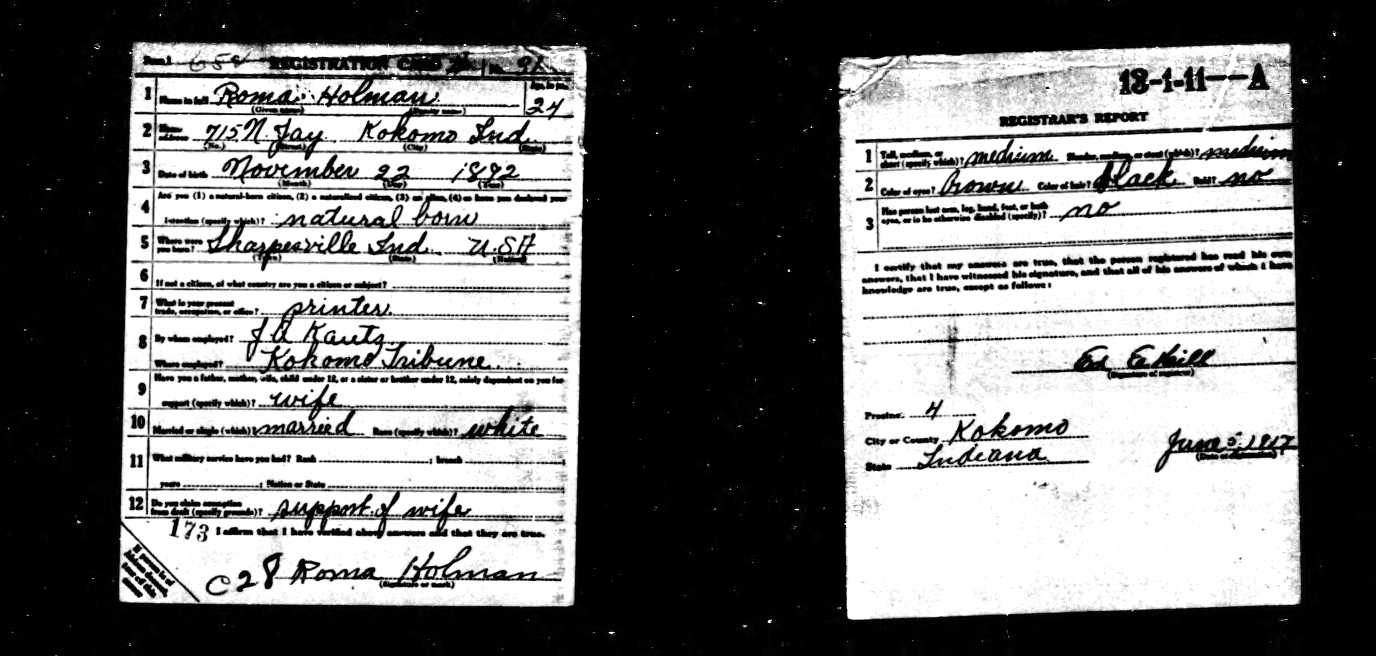 Form 1 658 REGISTRATION CARD No. 91
1 Name in full Roma Holman Age, in yrs. 24
(Given name) (Family name)
2 Home address 715 N. Jay Kokomo Ind
(No.) (Street) (City) (State)
3 Date of birth November 22 1892
(Month) (Day) (Year)
4 Are you (1) a natural-born citizen, (2) a naturalized citizen, (3) an alien, (4) or have you declared your
intention (specify which)? natural born
5 Where were you born? Sharpesville Ind. U.S.A
(Town) (State) (Nation)
6 If not a citizen, of what country are you a citizen or subject?
7 What is your present trade, occupation, or office? printer
8 By whom employed? J A Kautz
Where employed? Kokomo Tribune
9 Have you a father, mother, wife, child under 12, or a sister or brother under 12, solely dependent on you for
support (specify which)? wife
10 Married or single (which)? married Race (specify which)? white
11 What military service have you had? Rank ; branch ;
years ; Nation or State
12 Do you claim exemption from draft (specify grounds)? support of wife
173 I affirm that I have verified above answers and that they are true.
C28 Roma Holman
(Signature or mark)
If person is of
African descent,
tear off this
corner
13-1-11--A
REGISTRAR'S REPORT
1 Tall, medium, or short (specify which)? medium Slender, medium, or stout (which)? medium
2 Color of eyes? Brown Color of hair? Black Bald? no
3 Has person lost arm, leg, hand, foot, or both eyes, or is he otherwise disabled (specify)? no
I certify that my answers are true, that the person registered has read his own
answers, that I have witnessed his signature, and that all of his answers of which I have
knowledge are true, except as follows:
(Signature of registrar)
Precinct 4
City or County Kokomo
State Indiana
June 5, 1917
(Date of registration)